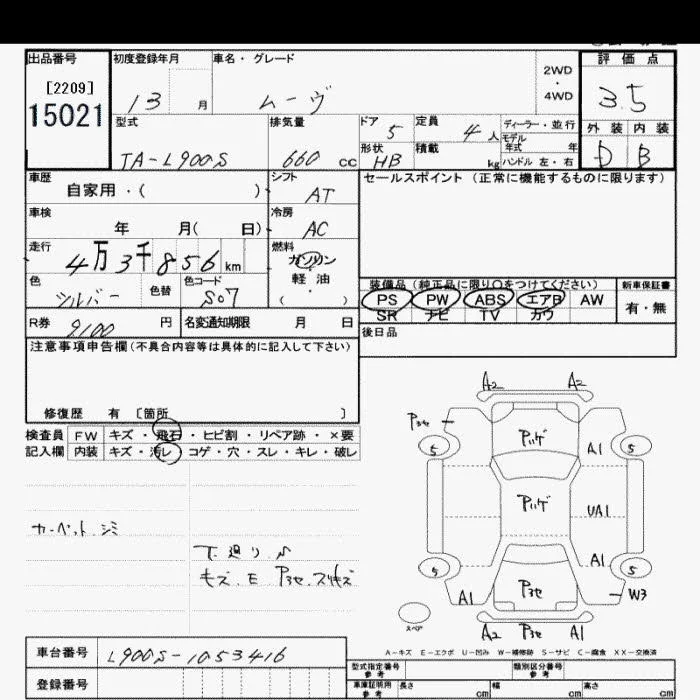 出品番号 初度登録年月 車名・グレード 2WD・4WD 評価点
[2209]
15021
13 月 ムーヴ 3.5
型式 排気量 ドア 5 定員 4人 ディーラー・並行 外装 内装
TA-L900S 660 cc 形状 HB 積載 kg モデル年式 年 ハンドル 左・右 D B
車歴 自家用・( ) シフト AT セールスポイント (正常に機能するものに限ります)
車検 年 月( 日) 冷房 AC
走行 4万3千856 km 燃料 ガソリン
軽油
( ・ )
色 シルバー 色替 色コード S07
装備品 (純正品に限り○をつけてください) 新車保証書
PS PW ABS エアB AW 有・無
SR ナビ TV カワ
R券 9100 円 名変通知期限 月 日
後日品
注意事項申告欄(不具合内容等は具体的に記入して下さい)
修復歴 有 [箇所 ]
検査員 FW キズ・飛石・ヒビ割・リペア跡・×要
記入欄 内装 キズ・汚レ・コゲ・穴・スレ・キレ・破レ
カーペット シミ
下廻り
A2 A2
5 5
A1
UA1
A1
5 5
A1 W3
A2 A1
スペア
A-キズ E-エクボ U-凹み W-補修跡 S-サビ C-腐食 XX-交換済
車台番号 L900S-1053416
登録番号
型式指定番号 参考 類別区分番号 参考
車庫証明用 参考 長さ cm 幅 cm 高さ cm